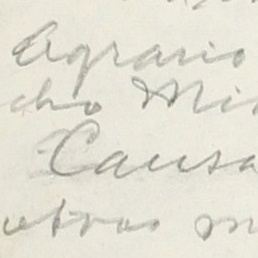 Agrario
cho Mi
Causa
otros m